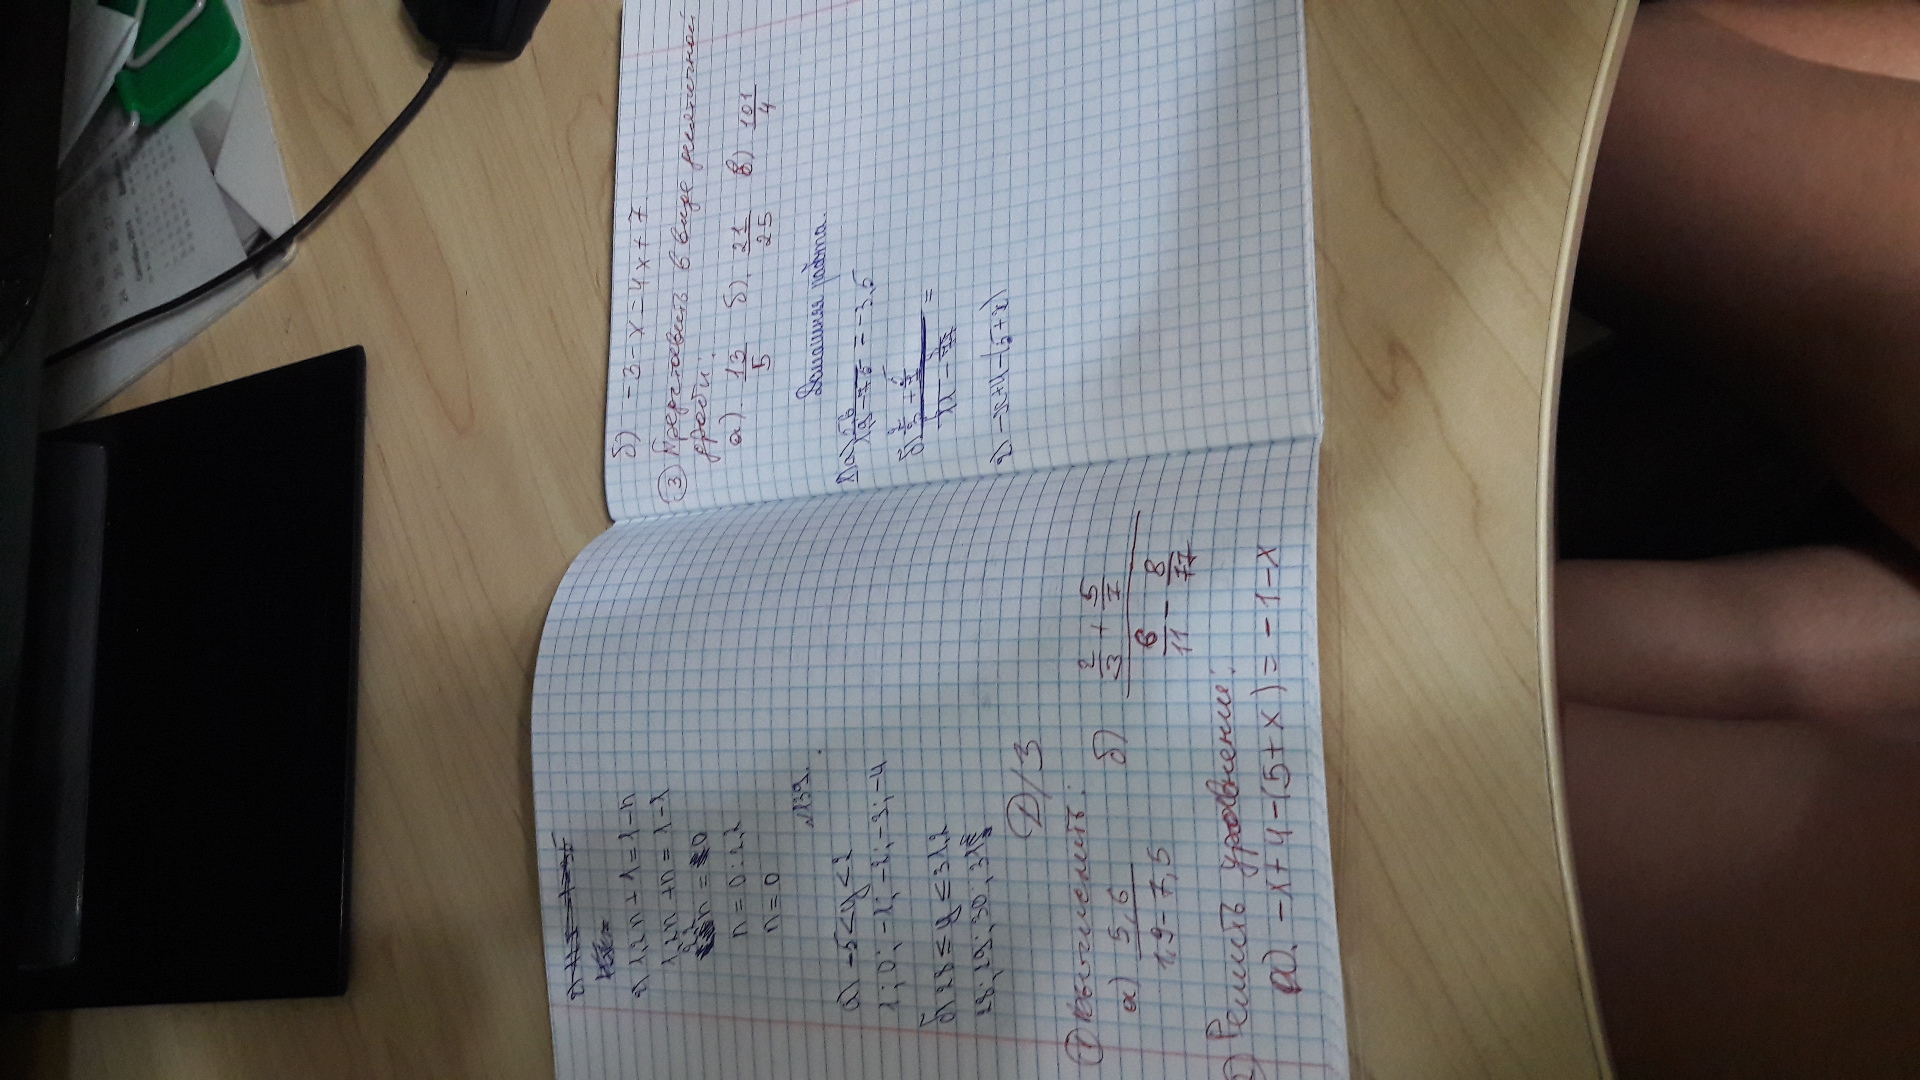 г) 1,2n + 1 = 1 - n
1,2n + n = 1 - 1
2,2n = 0
n = 0 : 2,2
n = 0
№139.
а) -5 < y < 2
1; 0; -1; -2; -3; -4
б) 28 ≤ y ≤ 31,2
28; 29; 30; 31
Д/З
① Вычислить:
а) 5,6 / (1,9 - 7,5) б) (2/3 + 5/7) / (6/11 - 8/77)
2) Решить уравнение:
а). -x + 4 - (5 + x) = -1 - x
б) -3 - x = 4x + 7
③ Представить в виде десятичной
дроби:
а). 13/5 б). 21/25 в) 101/4
Домашняя работа.
1) а) 5,6 / (1,9 - 7,5) = -3,5
б) (2/3 + 5/7) / (11 - 77) =
2) -x + 4 - (5 + x)